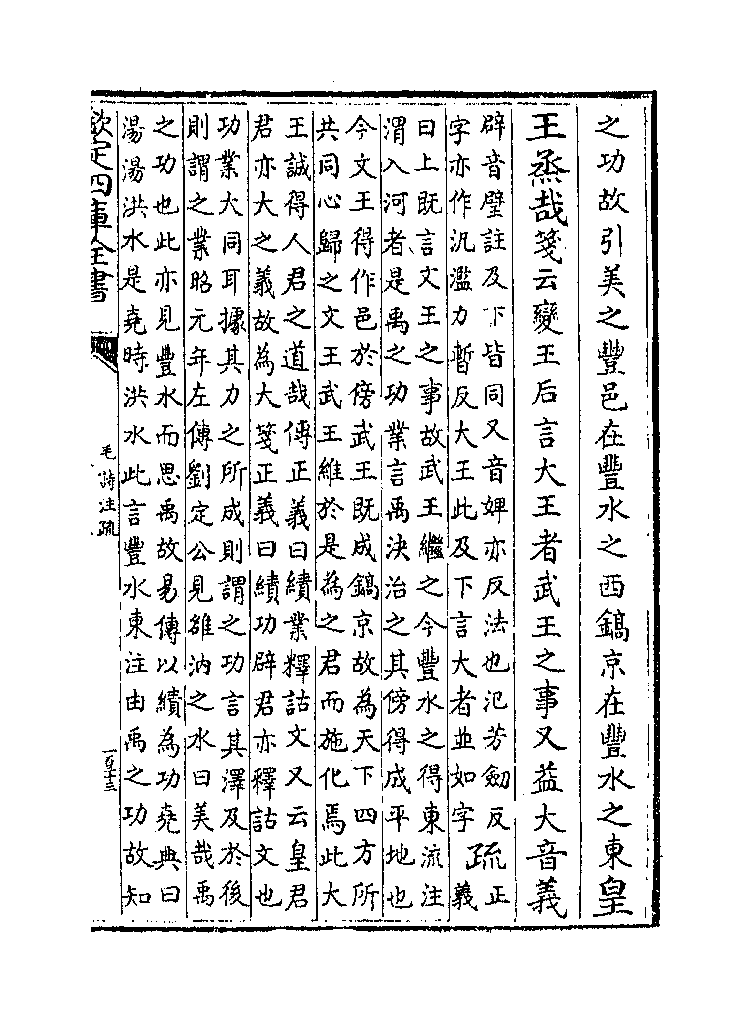 之功故引美之豐邑在豐水之西鎬京在豐水之東皇
王烝哉箋云變王后言大王者武王之事又益大音義
辟音璧註及下皆同又音婢亦反法也氾芳劒反
字亦作汎濫力暫反大王此及下言大者並如字
疏
正
義
曰上既言文王之事故武王繼之今豐水之得東流注
渭入河者是禹之功業言禹決治之其傍得成平地也
今文王得作邑於傍武王既成鎬京故為天下四方所
共同心歸之文王武王維於是為之君而施化焉此大
王誠得人君之道哉傳正義曰績業釋詁文又云皇君
君亦大之義故為大箋正義曰績功辟君亦釋詁文也
功業大同耳據其力之所成則謂之功言其澤及於後
則謂之業昭元年左傳劉定公見雒汭之水曰美哉禹
之功也此亦見豐水而思禹故易傳以績為功堯典曰
湯湯洪水是堯時洪水此言豐水東注由禹之功故知
欽定四庫全書
毛詩注疏